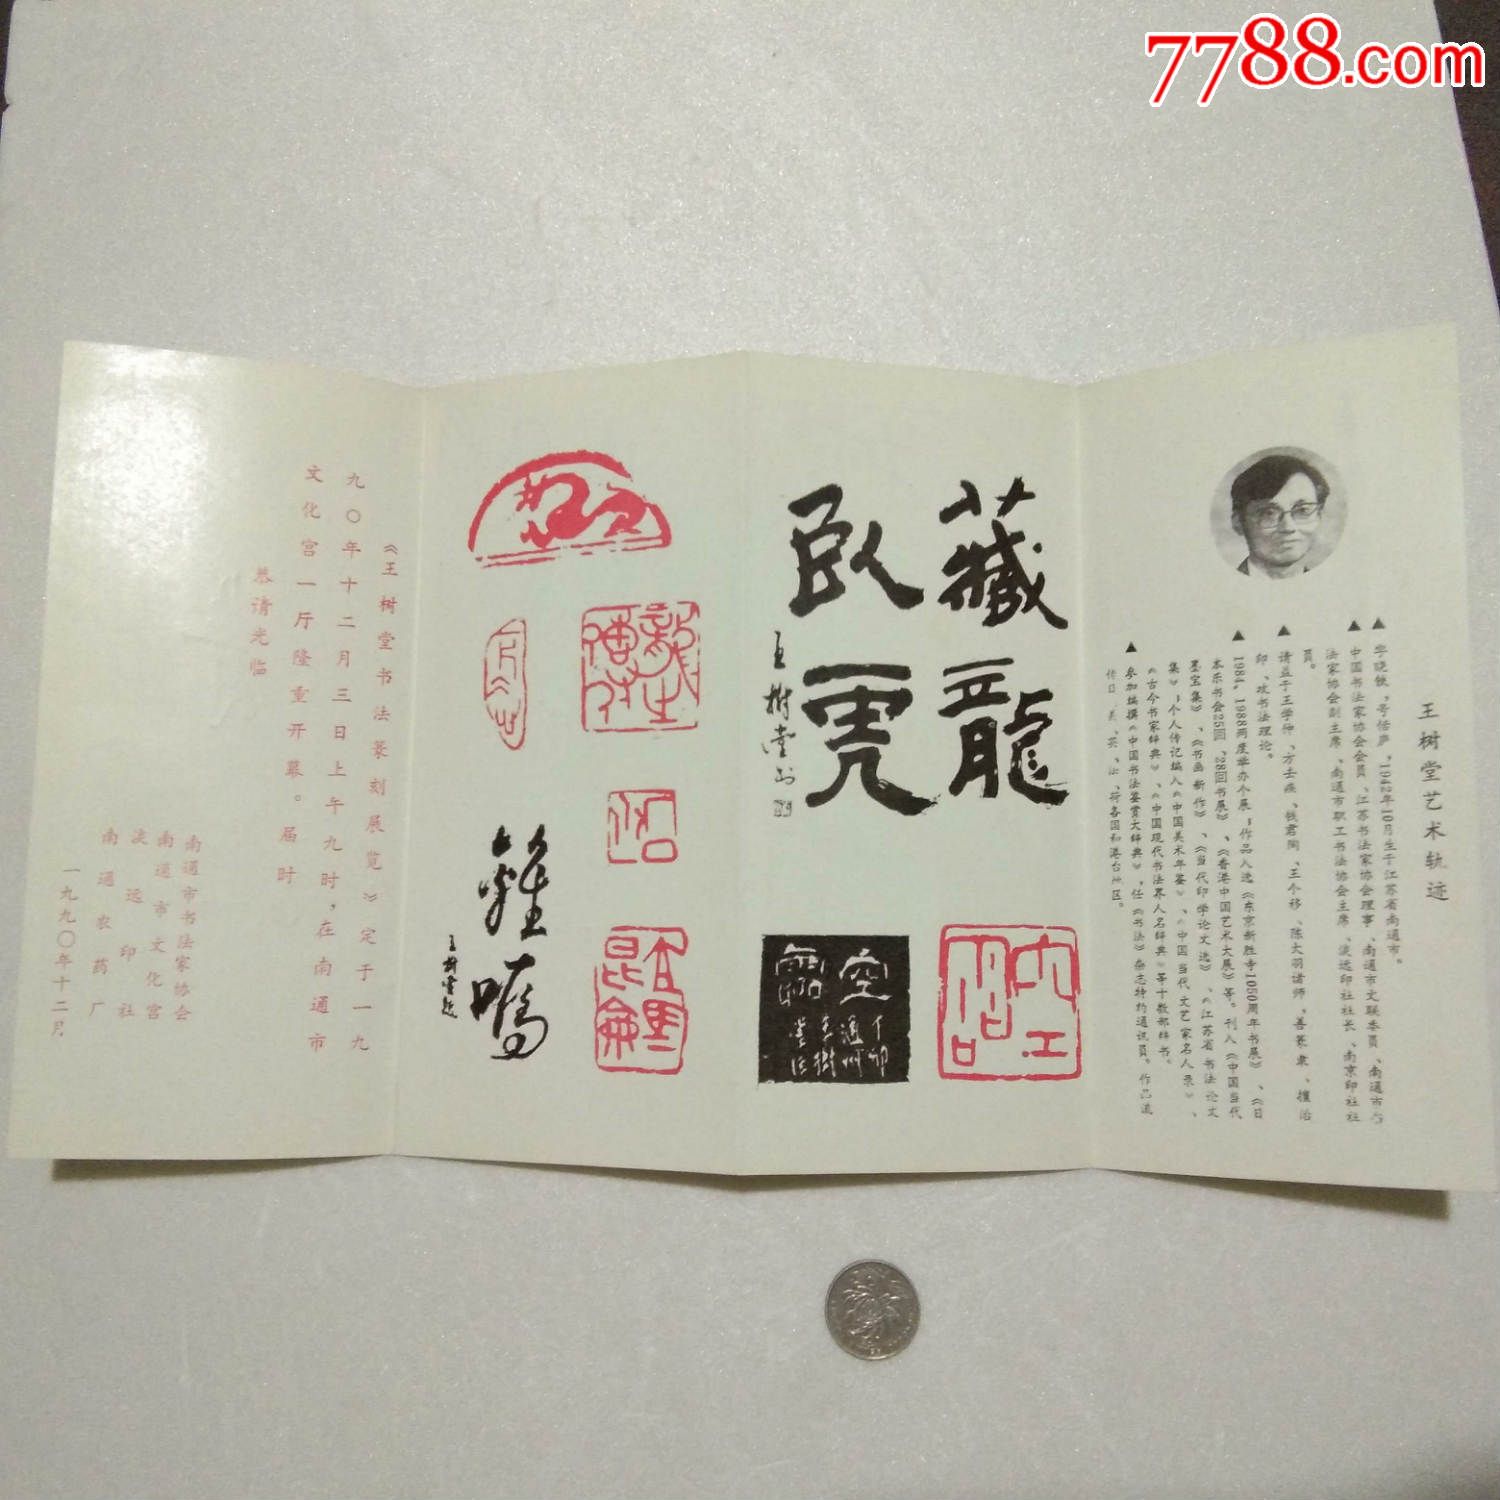 7788.com
王树堂艺术轨迹
▲字晓铁,号恬庐,1942年10月生于江苏省南通市。
▲中国书法家协会会员、江苏书法家协会理事、南通市文联委员、南通市书
法家协会副主席、南通市职工书法协会主席、泼远印社社长、南京印社社
员。
▲请益于王学仲、方去疾、钱君陶、王个移、陈大羽诸师,善篆隶、擅治
印、攻书法理论。
▲1984、1988两度举办个展;作品入选《东京新胜寺1050周年书展》、《日
本乐书会25回、28回书展》、《香港中国艺术大展》等。刊入《中国当代
墨宝集》、《书画新作》、《当代印学论文选》、《江苏省书法论文
集》;个人传记编入《中国美术年鉴》、《中国当代文艺家名人录》、
《古今书家辞典》、《中国现代书法界人名辞典》等十数部辞书。
▲参加编撰《中国书法鉴赏大辞典》,任《书法》杂志特约通讯员。作品流
传日、美、英、法、荷各国和港台地区。
藏龍
卧虎
王樹堂
《王树堂书法篆刻展览》定于一九
九〇年十二月三日上午九时,在南通市
文化宫一厅隆重开幕。届时
恭请光临
南通市书法家协会
南通市文化宫
泼远印社
南通农药厂
一九九〇年十二月